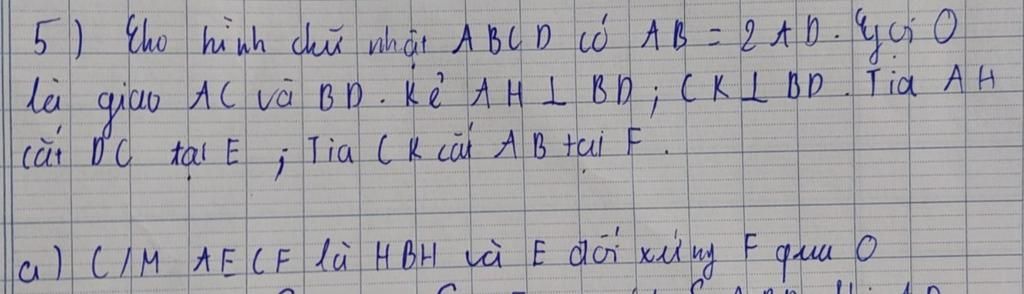 5) Cho hình chữ nhật ABCD có AB = 2AD. Gọi O
là giao AC và BD. Kẻ AH ⊥ BD; CK ⊥ BD. Tia AH
cắt DC tại E; Tia CK cắt AB tại F.
a) C/M AECF là HBH và E đối xứng F qua O